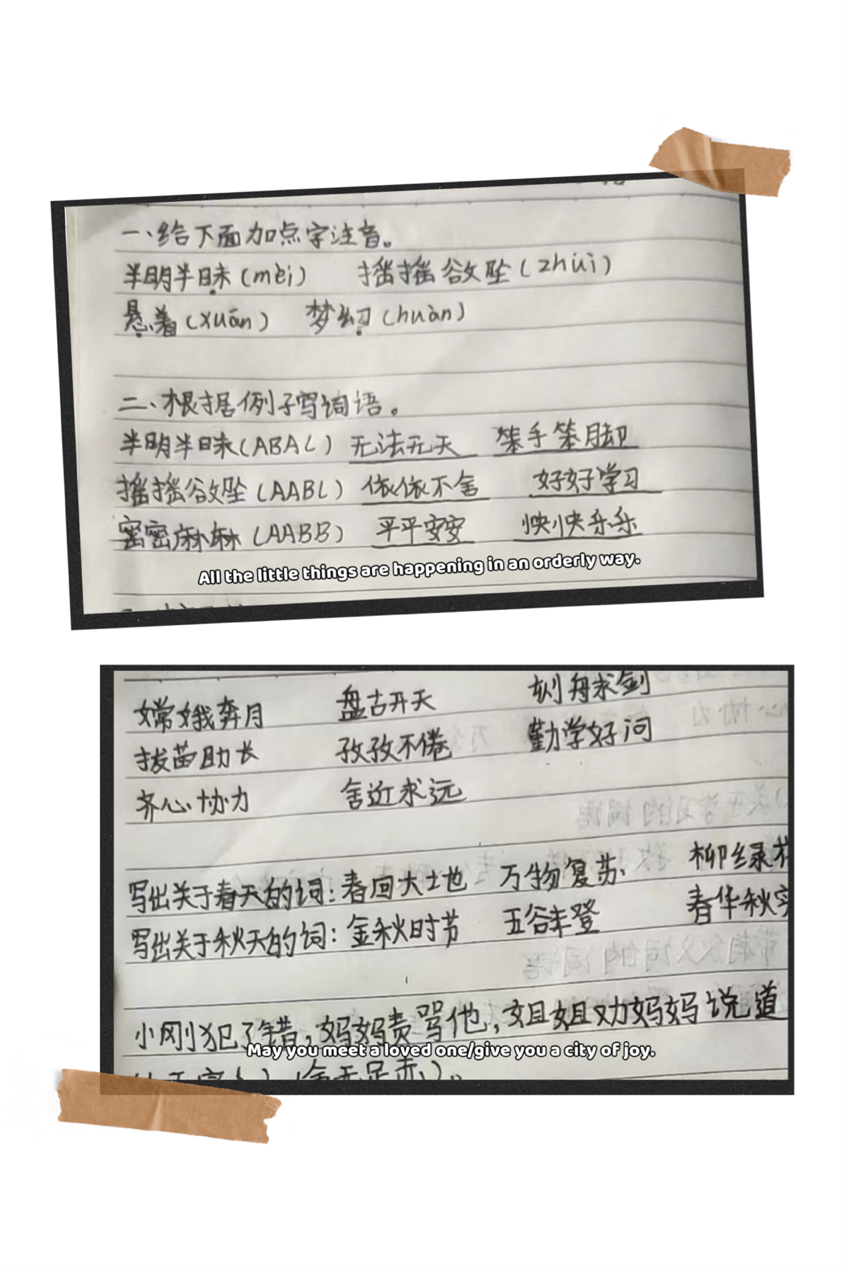 一、给下面加点字注音。
半明半昧(mèi) 摇摇欲坠(zhuì)
悬着(xuán) 梦幻(huàn)
二、根据例子写词语。
半明半昧(ABAC) 无法无天 笨手笨脚
摇摇欲坠(AABC) 依依不舍 好好学习
密密麻麻(AABB) 平平安安 快快乐乐
All the little things are happening in an orderly way.
嫦娥奔月 盘古开天 刻舟求剑
拔苗助长 孜孜不倦 勤学好问
齐心协力 舍近求远
写出关于春天的词:春回大土地 万物复苏、 柳绿花
写出关于秋天的词:金秋时节 五谷丰登 春华秋实
小刚犯了错,妈妈责骂他,姐姐劝妈妈说道
May you meet a loved one/give you a city of joy.